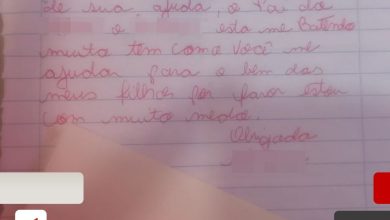 de sua ajuda, o Pai da
e esta me Batendo
muito têm como você me
ajudar para o bem das
meus filhos por favor estou
com muito medo.
Obrigada